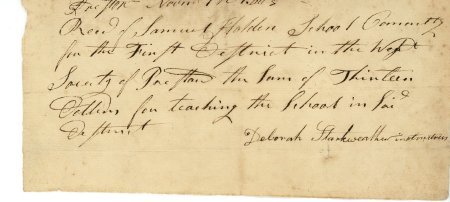 Preston Novem
Recd of Samuel Holden School Committ
for the First District in the West
Society of Preston the Sum of Thirteen
Dollars for teaching the School in Said
District
Deborah Starkweather instructress